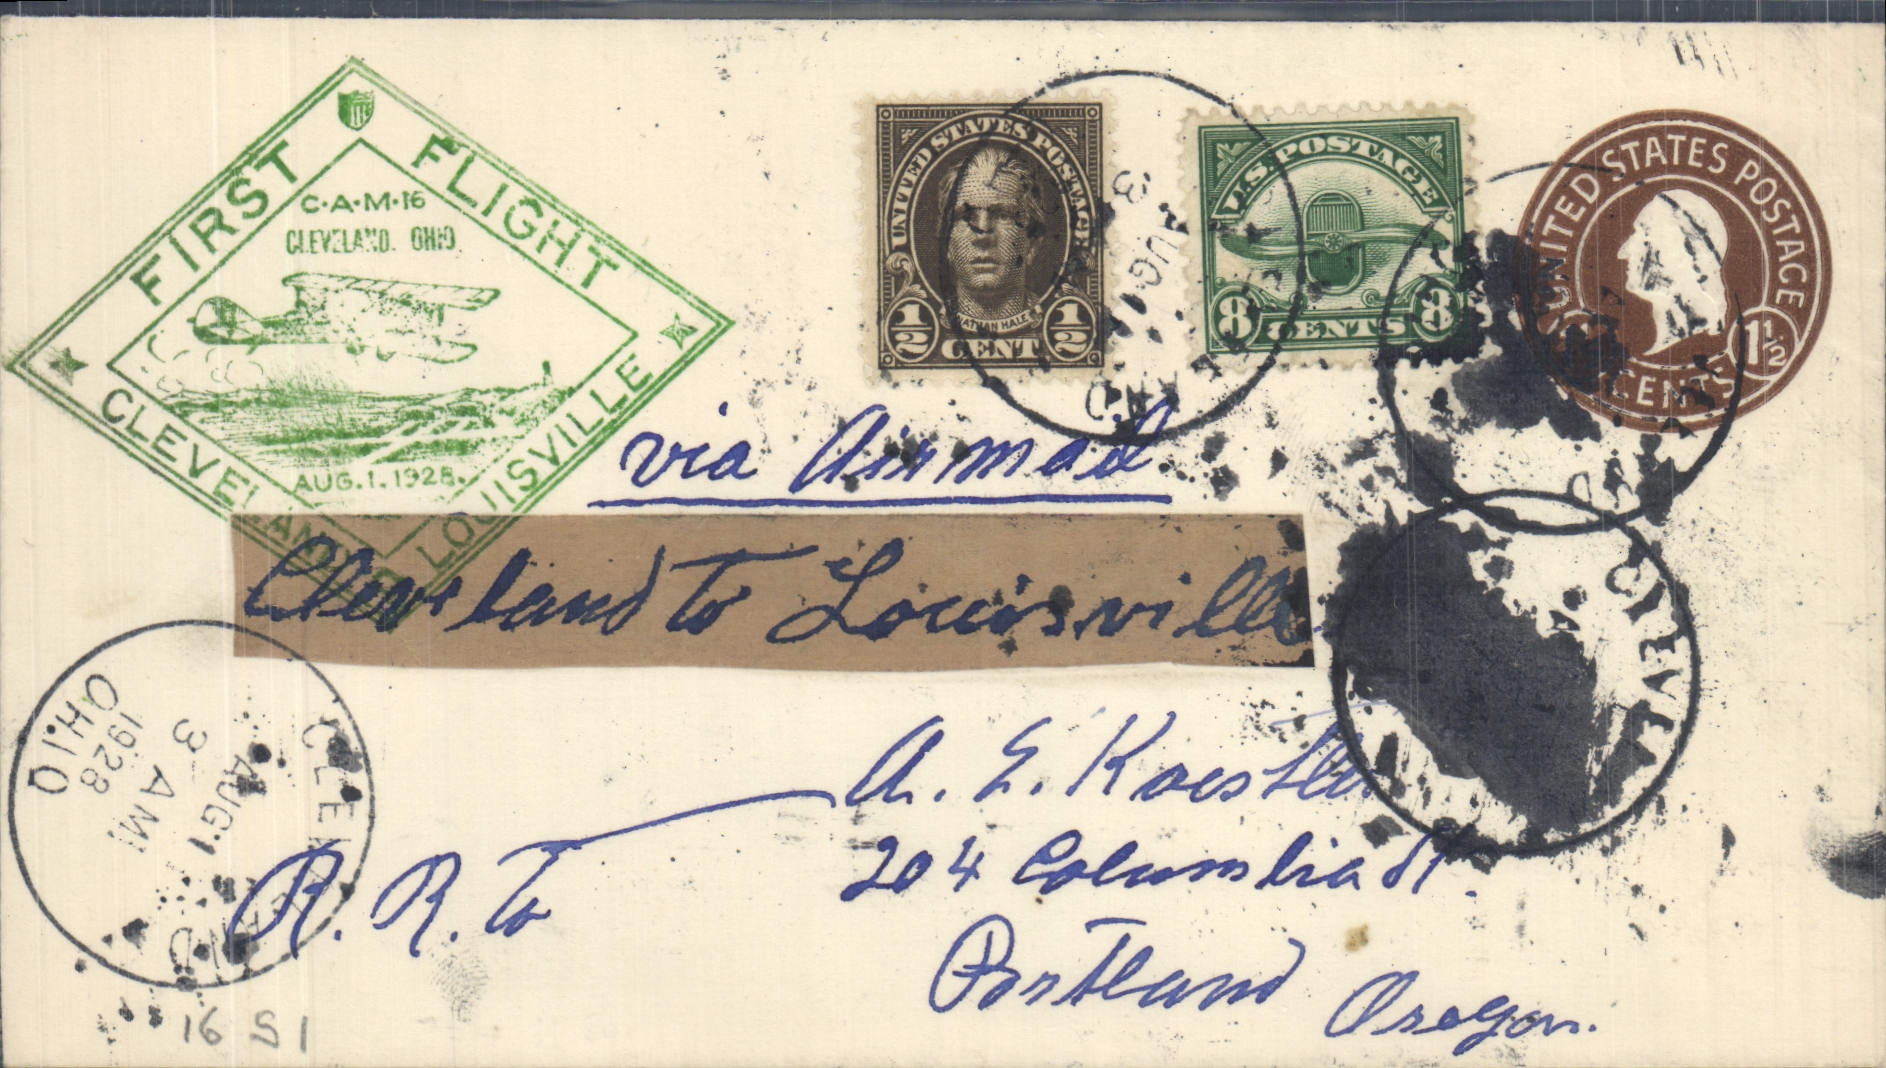 FIRST FLIGHT
C·A·M·16
CLEVELAND. OHIO.
AUG.1.1928.
CLEVELAND
LOUISVILLE
UNITED STATES POSTAGE
NATHAN HALE
1/2 CENT 1/2
U.S. POSTAGE
8 CENTS 8
UNITED STATES POSTAGE
1 1/2
CENTS
AUG 1
3
via Air mail
Cleveland to Louisville
CLEVELA
A. E. Koestle
204 Columbia St.
Portland
Oregon.
R. R. to
CLEVELAND
AUG 1
3 AM
1928
OHIO
16 S 1